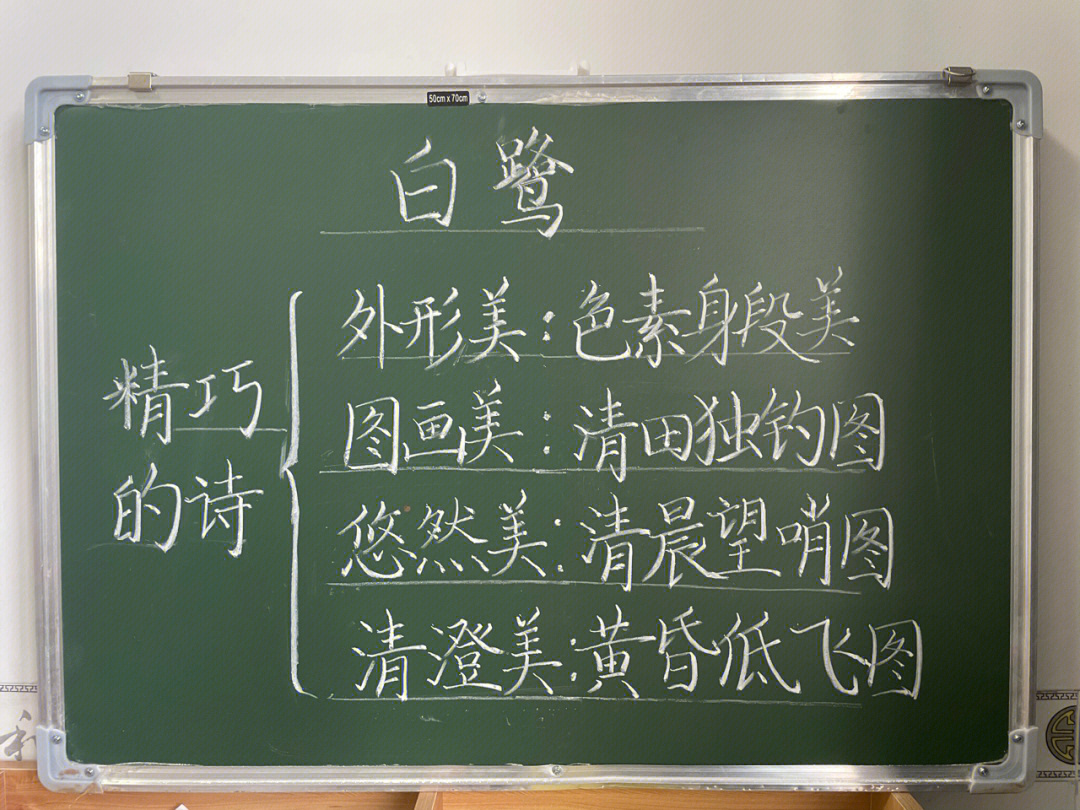 50cm x 70cm
白鹭
精巧
的诗
外形美:色素身段美
图画美:清田独钓图
悠然美:清晨望哨图
清澄美:黄昏低飞图